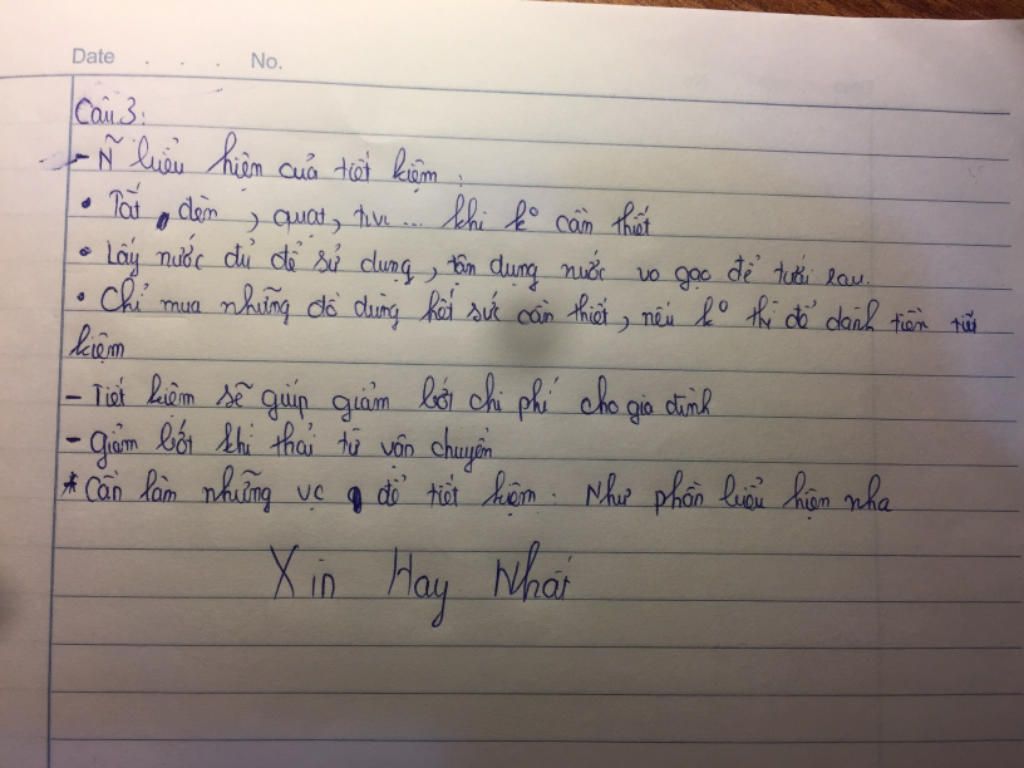 Date . . . No.
Câu 3:
- Ñ biểu hiện của tiết kiệm :
• Tắt đèn, quạt, tivi... khi kº cần thiết
• Lấy nước đủ để sử dụng, tận dụng nước vo gạo để tưới rau.
• Chỉ mua những đồ dùng hết sức cần thiết, nếu kº thì để dành tiền tiết
kiệm
- Tiết kiệm sẽ giúp giảm bớt chi phí cho gia đình
- Giảm bớt khí thải từ vận chuyển
* Cần làm những vc để tiết kiệm. Như phần biểu hiện nha
Xin Hay Nhất